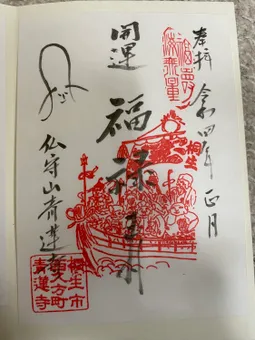 奉拝
令和四年正月
開運
福禄寿
桐生
仏守山青蓮寺
桐生市
西久方町
青蓮寺